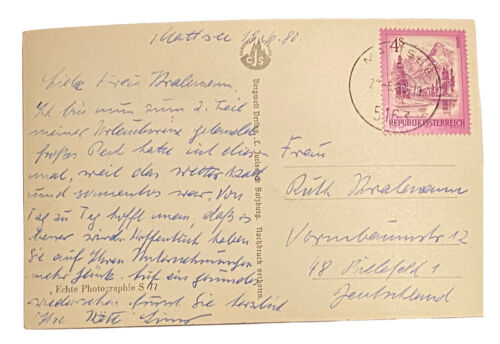 Mattsee 15.6.80.
Liebe Frau Stralemann,
Ich bin nun zum 2. Teil
meiner Urlaubsreise gelandet
großes Pech hatte ich dies-
mal, weil das Wetter kalt
und war. Von
Tag zu Tag hofft man, daß es
besser wird. Hoffentlich haben
Sie auf Ihren Unternehmungen
mehr Glück. Auf ein gesundes
Wiedersehen grüßt Sie herzlich
Ihre
Echte Photographie S 77
CJS
Bergwelt Verlag C. Jurischek Salzburg. Nachdruck verboten.
4S
REPUBLIK ÖSTERREICH
5163
Frau
Ruth Stralemann
Vormbaumstr 12
48 Bielefeld 1
Deutschland